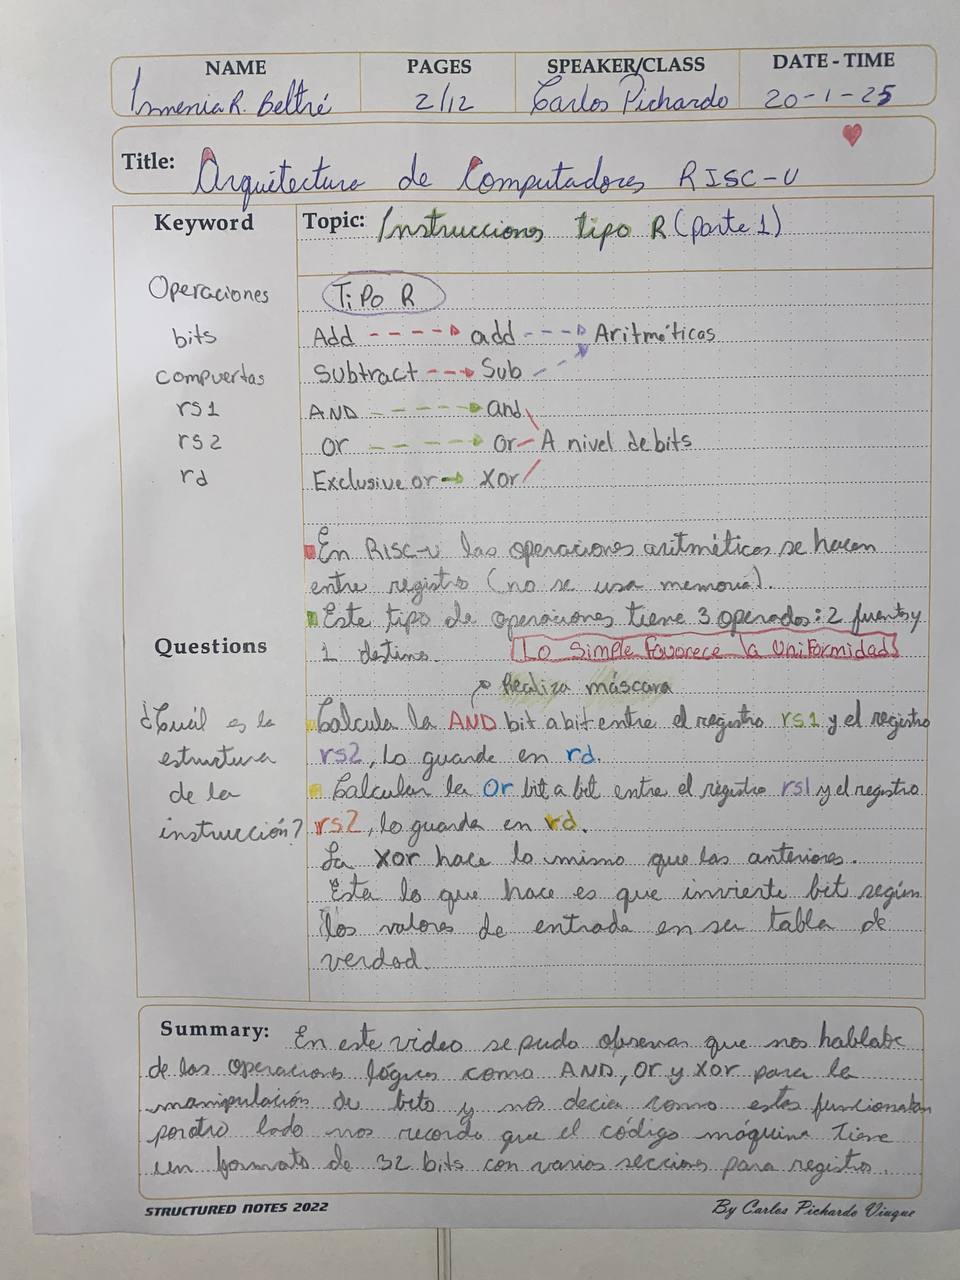 NAME PAGES SPEAKER/CLASS DATE - TIME
Ismenia R. Beltré 2/12 Carlos Pichardo 20-1-25
Title: Arquitectura de Computadores RISC-V
Keyword Topic: Instrucciones tipo R (parte 1)
Operaciones TiPo R
bits Add add Aritméticas
compuertas Subtract Sub
rs1 AND and
rs2 or or A nivel de bits
rd Exclusive or xor
En RISC-V las operaciones aritméticas se hacen
entre registro (no se usa memoria).
Este tipo de operaciones tiene 3 operados: 2 fuentes y
Questions 1 destino. Lo Simple Favorece la Uniformidad
Realiza máscara
¿Cuál es la Calcula la AND bit a bit entre el registro rs1 y el registro
estructura rs2, Lo guarde en rd.
de la Calcular la Or bit a bit entre el registro rs1 y el registro
instrucción? rs2, lo guarda en rd.
La xor hace lo mismo que las anteriores.
Esta lo que hace es que invierte bit según
los valores de entrada en su tabla de
verdad.
Summary: En este video se pudo observar que nos hablabe
de las operaciones lógicas como AND, Or y xor para la
manipulación de bits y nos decia como estas funcionaban
por otro lado nos recordo que el código máquina tiene
un formato de 32 bits con varias secciones para registro.
STRUCTURED NOTES 2022 By Carlos Pichardo Viuque